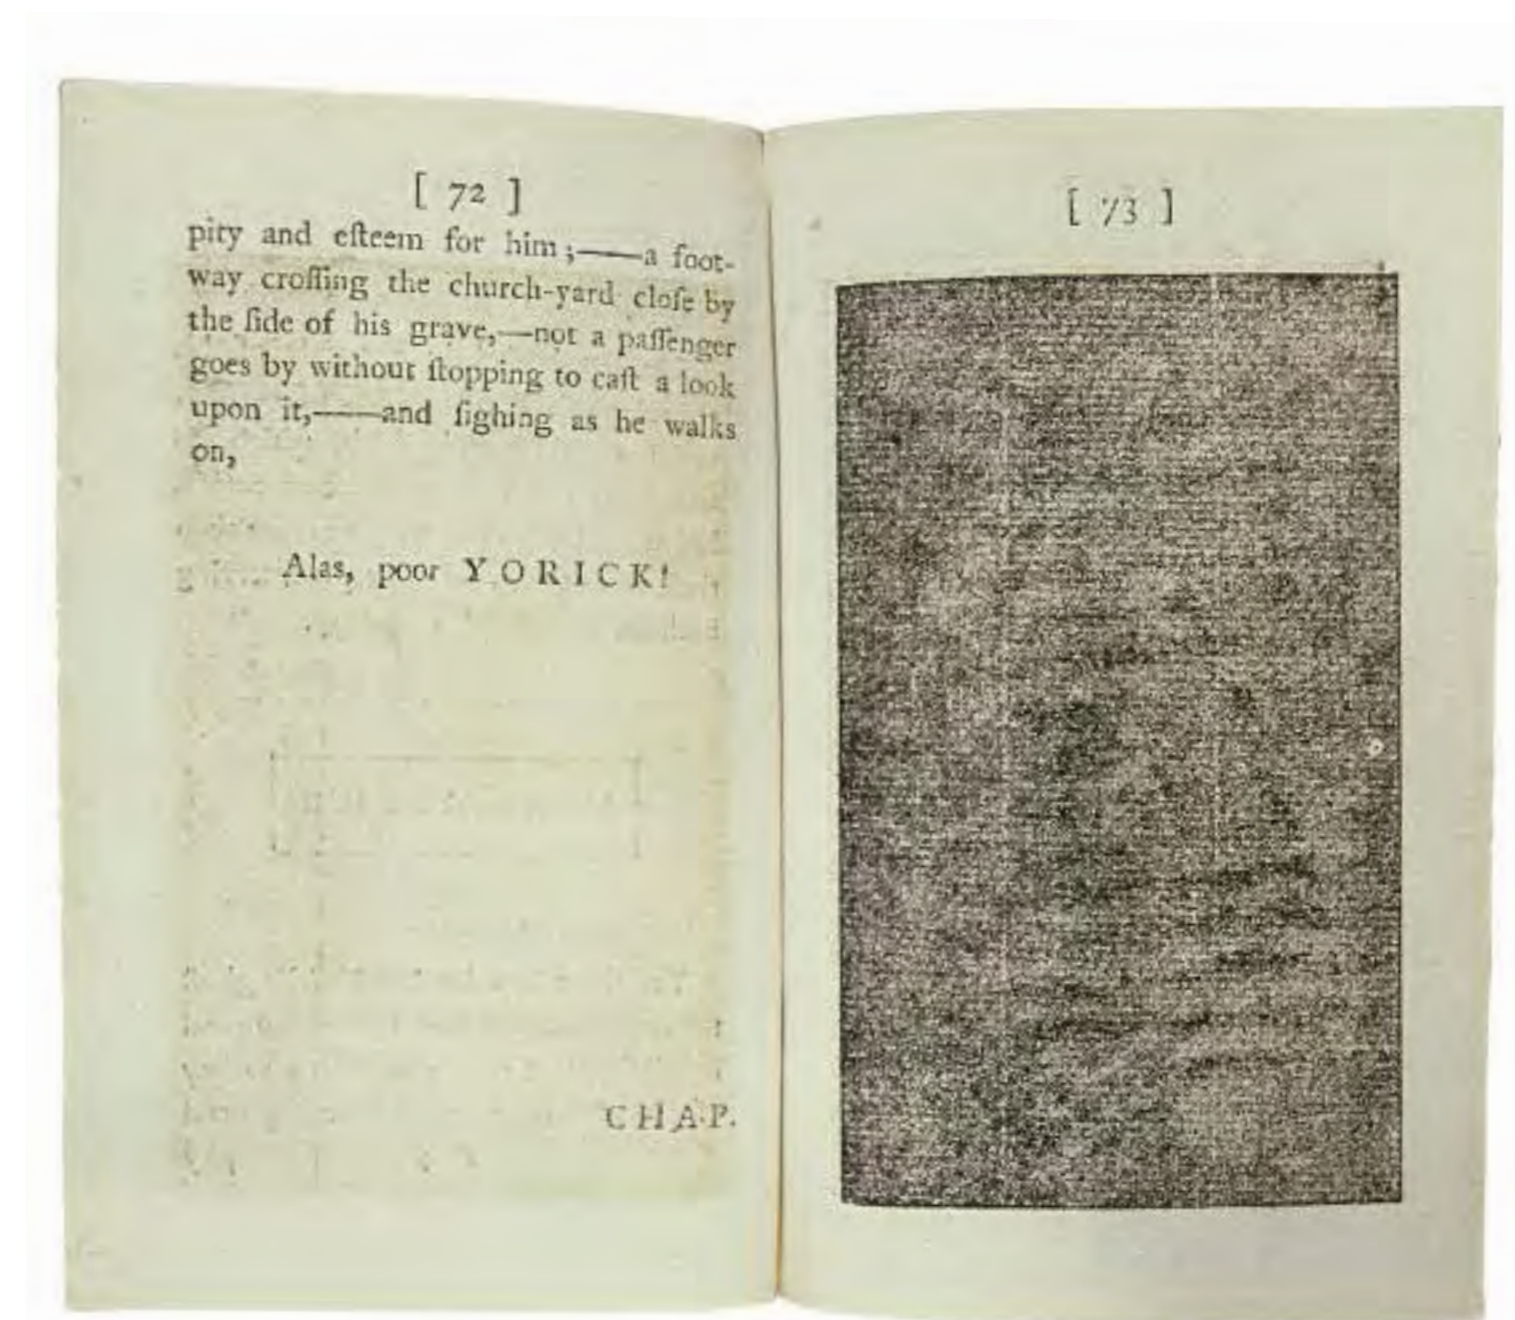 [ 72 ]
pity and eſteem for him;——a foot-
way croſſing the church-yard cloſe by
the ſide of his grave,—not a paſſenger
goes by without ſtopping to caſt a look
upon it,——and ſighing as he walks
on,
Alas, poor YORICK!
CHAP.
[ 73 ]